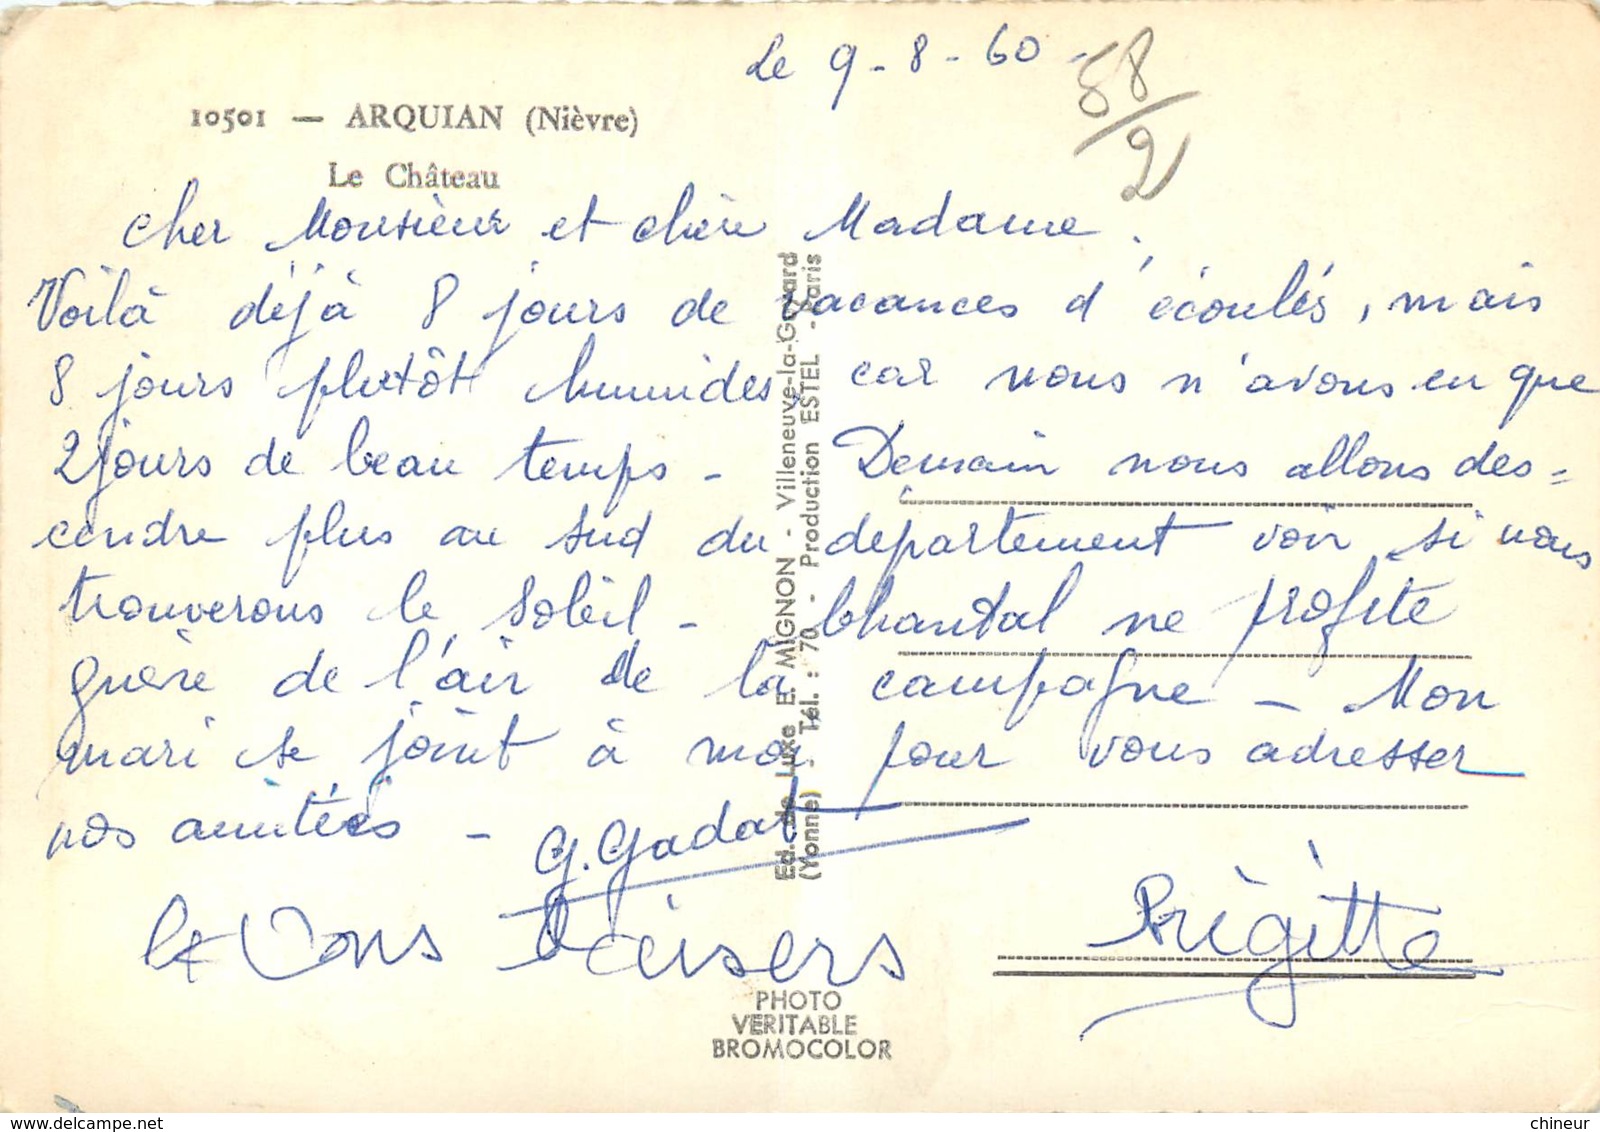 le 9-8-60-
58/2
10501 — ARQUIAN (Nièvre)
Le Château
Cher Monsieur et chère Madame.
Voilà déjà 8 jours de vacances d'écoulés, mais
8 jours plutôt humides car nous n'avons eu que
2 jours de beau temps - Demain nous allons des=
cendre plus au sud du département voir si nous
trouverons le soleil - Chantal ne profite
guère de l'air de la campagne - Mon
mari se joint à moi pour vous adresser
nos amitiés - G. Gadat
Bons Baisers Brigitte
Ed. de Luxe E. MIGNON - Villeneuve-la-Guyard
(Yonne) - Tél. : 70 - Production ESTEL - Paris
PHOTO
VERITABLE
BROMOCOLOR
chineur
delcampe.net